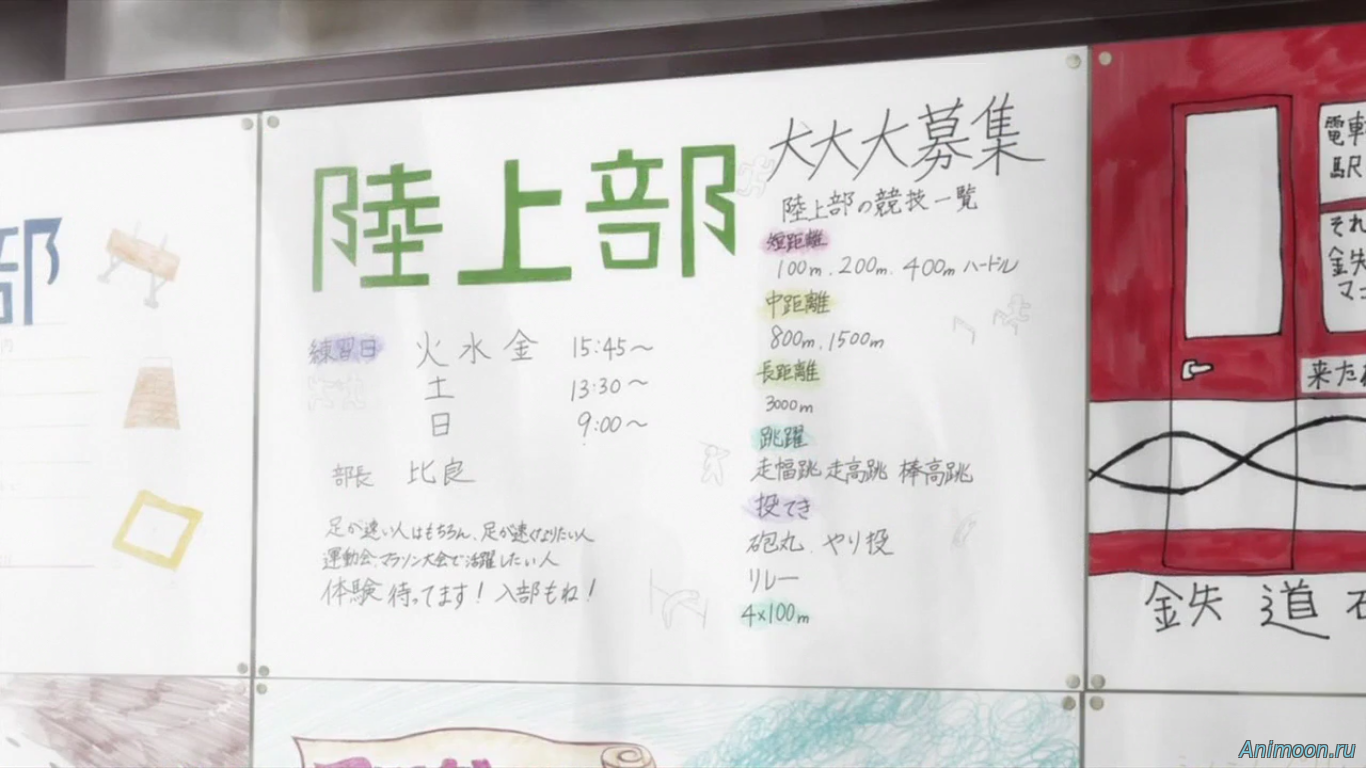 部
陸上部
大大大募集
陸上部の競技一覧
短距離
100m.200m.400mハードル
中距離
800m.1500m
長距離
3000m
跳躍
走幅跳 走高跳 棒高跳
投てき
砲丸.やり投
リレー
4×100m
練習日 火水金 15:45~
土 13:30~
日 9:00~
部長 比良
足が速い人はもちろん、足が速くなりたい人
運動会、マラソン大会で活躍したい人
体験待ってます!入部もね!
電車
駅
それ
鉄
マ
来た
鉄道
Animoon.ru